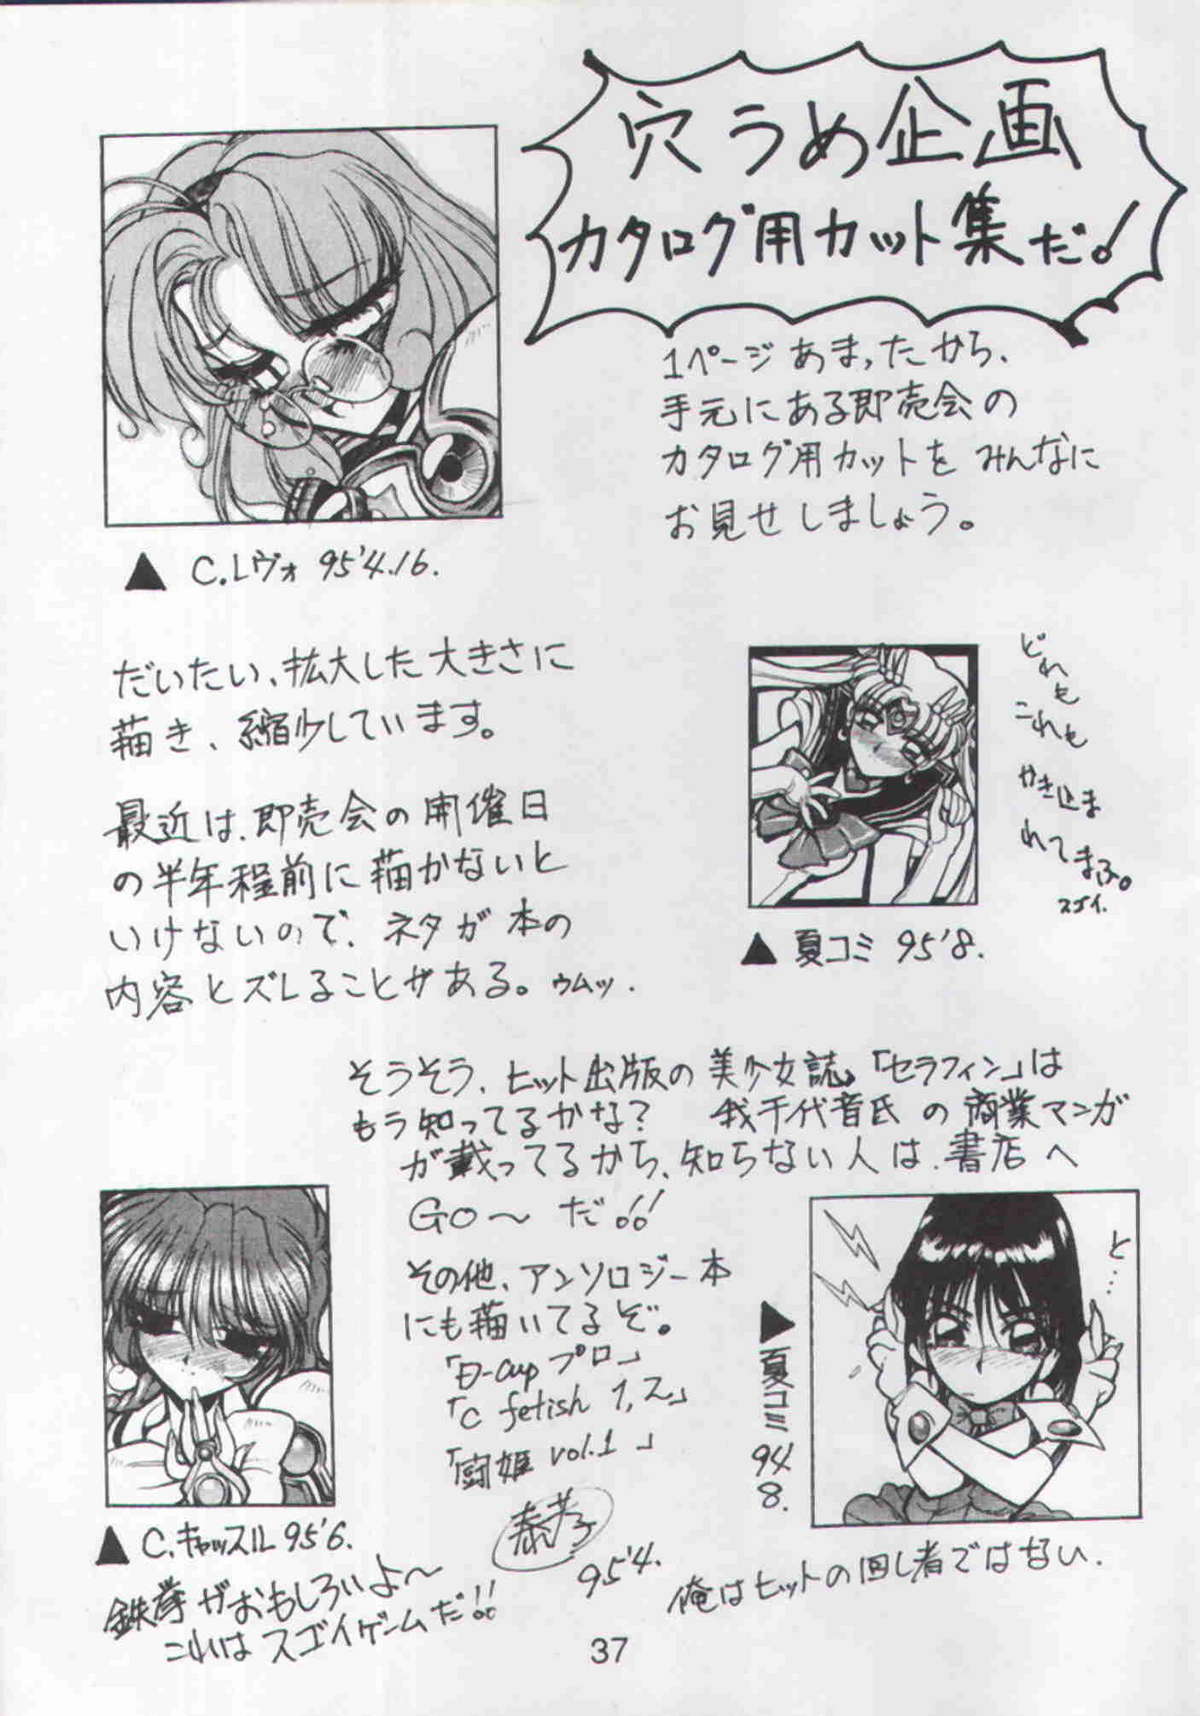 穴うめ企画
カタログ用カット集だ!
1ページあまったから、
手元にある即売会の
カタログ用カットをみんなに
お見せしましょう。
▲ C.レヴォ 95'4.16.
だいたい、拡大した大きさに
描き、縮少しています。
最近は、即売会の開催日
の半年程前に描かないと
いけないので、ネタが本の
内容とズレることがある。ゥムッ.
どれも
これも
かき込ま
れてまふ。
スゴイ.
▲ 夏コミ 95'8.
そうそう、ヒット出版の美少女誌、「セラフィン」は
もう知ってるかな? 我千代音氏の商業マンガ
が載ってるから、知らない人は、書店へ
GO〜 だ!!
その他、アンソロジー本
にも描いてるぞ。
「D-cupプロ」
「C fetish 1,2」
「闘姫 vol.1」
95'4.
▲ C.キャッスル 95'6.
鉄拳がおもしろいよ〜
これはスゴイゲームだ!!
と…
▲ 夏コミ 94 8.
俺はヒットの回し者ではない.
37